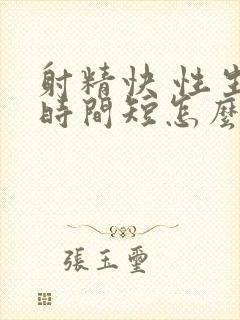 射精快 性生
時間短怎麼
張玉璽